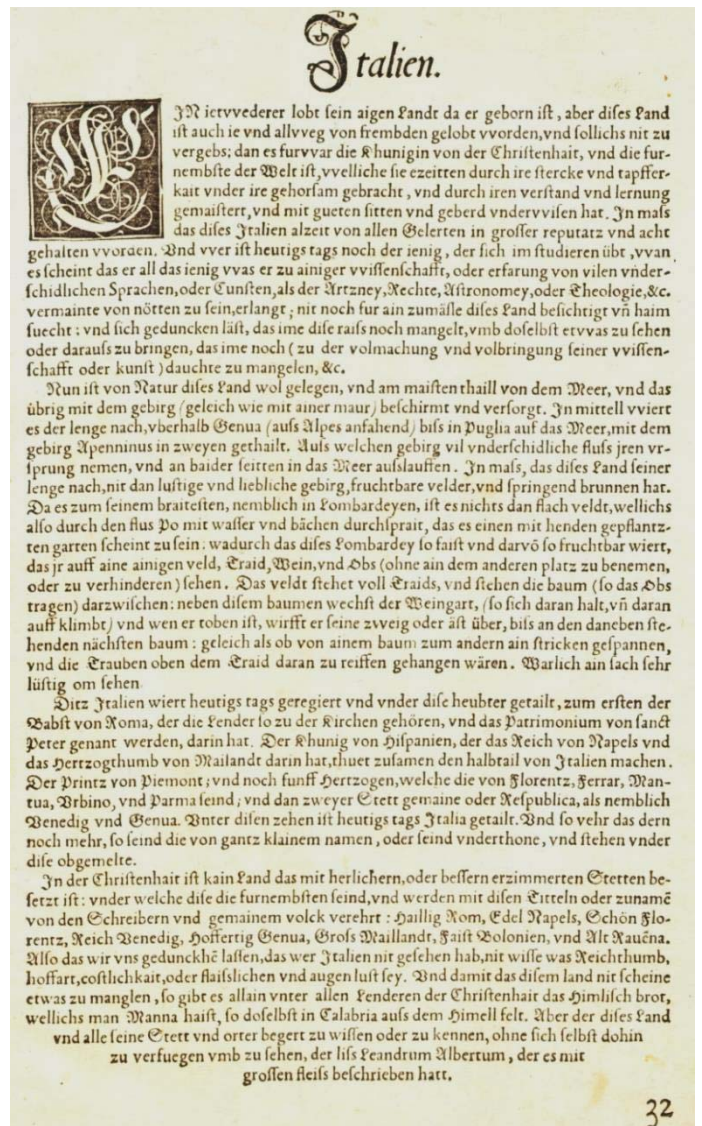 Italien.
WJN ietvvederer lobt ſein aigen Landt da er geborn iſt, aber diſes Land
iſt auch ie vnd allvveg von frembden gelobt vvorden, vnd ſollichs nit zu
vergebs; dan es furvvar die Khunigin von der Chriſtenhait, vnd die fur-
nembſte der Welt iſt, vvelliche ſie ezeitten durch ire ſtercke vnd tapffer-
kait vnder ire gehorſam gebracht, vnd durch iren verſtand vnd lernung
gemaiſtert, vnd mit gueten ſitten vnd geberd vndervviſen hat. Jn maſs
das diſes Jtalien alzeit von allen Gelerten in groſſer reputatz vnd acht
gehalten vvorden. Vnd vver iſt heutigs tags noch der ienig, der ſich im ſtudieren übt, vvan
es ſcheint das er all das ienig vvas er zu ainiger vviſſenſchafft, oder erfarung von vilen vnder-
ſchidlichen Sprachen, oder Cunſten, als der Artzney, Rechte, Aſtronomey, oder Theologie, &c.
vermainte von nötten zu ſein, erlangt; nit noch fur ain zumäſle diſes Land beſichtigt vn̄ haim
ſuecht: vnd ſich geduncken läſt, das ime diſe raiſs noch mangelt, vmb doſelbſt etvvas zu ſehen
oder darauſs zu bringen, das ime noch (zu der volmachung vnd volbringung ſeiner vviſſen-
ſchafft oder kunſt) dauchte zu mangelen, &c.
Nun iſt von Natur diſes Land wol gelegen, vnd am maiſten thaill von dem Meer, vnd das
übrig mit dem gebirg (geleich wie mit ainer maur) beſchirmt vnd verſorgt. Jn mittell vviert
es der lenge nach, vberhalb Genua (auſs Alpes anfahend) biſs in Puglia auf das Meer, mit dem
gebirg Apenninus in zweyen gethailt. Auſs welchen gebirg vil vnderſchidliche fluſs jren vr-
ſprung nemen, vnd an baider ſeitten in das Meer auſslauffen. Jn maſs, das diſes Land ſeiner
lenge nach, nit dan luſtige vnd liebliche gebirg, fruchtbare velder, vnd ſpringend brunnen hat.
Da es zum ſeinem braiteſten, nemblich in Lombardeyen, iſt es nichts dan flach veldt, wellichs
alſo durch den flus Po mit waſſer vnd bächen durchſprait, das es einen mit henden gepflantz-
ten garten ſcheint zu ſein: wadurch das diſes Lombardey ſo faiſt vnd darvō ſo fruchtbar wiert,
das jr auff aine ainigen veld, Traid, Wein, vnd Obs (ohne ain dem anderen platz zu benemen,
oder zu verhinderen) ſehen. Das veldt ſtehet voll Traids, vnd ſtehen die baum (ſo das Obs
tragen) darzwiſchen: neben diſem baumen wechſt der Weingart, (ſo ſich daran halt, vn̄ daran
auff klimbt) vnd wen er toben iſt, wirfft er ſeine zvveig oder äſt über, biſs an den daneben ſte-
henden nächſten baum: geleich als ob von ainem baum zum andern ain ſtricken geſpannen,
vnd die Trauben oben dem Traid daran zu reiffen gehangen wären. Warlich ain ſach ſehr
lüſtig om ſehen.
Ditz Jtalien wiert heutigs tags geregiert vnd vnder diſe heubter getailt, zum erſten der
Babſt von Roma, der die Lender ſo zu der Kirchen gehören, vnd das Patrimonium von ſanct
Peter genant werden, darin hat. Der Khunig von Hiſpanien, der das Reich von Napels vnd
das Hertzogthumb von Mailandt darin hat, thuet zuſamen den halbtail von Jtalien machen.
Der Printz von Piemont; vnd noch funff Hertzogen, welche die von Florentz, Ferrar, Man-
tua, Vrbino, vnd Parma ſeind; vnd dan zweyer Stett gemaine oder Reſpublica, als nemblich
Venedig vnd Genua. Vnter diſen zehen iſt heutigs tags Jtalia getailt. Vnd ſo vehr das dern
noch mehr, ſo ſeind die von gantz klainem namen, oder ſeind vnderthone, vnd ſtehen vnder
diſe obgemelte.
Jn der Chriſtenhait iſt kain Land das mit herlichern, oder beſſern erzimmerten Stetten be-
ſetzt iſt: vnder welche diſe die furnembſten ſeind, vnd werden mit diſen Titteln oder zunamē
von den Schreibern vnd gemainem volck verehrt: Haillig Rom, Edel Napels, Schön Flo-
rentz, Reich Venedig, Hoffertig Genua, Groſs Maillandt, Faiſt Bolonien, vnd Alt Rauēna.
Alſo das wir vns gedunckhē laſſen, das wer Jtalien nit geſehen hab, nit wiſſe was Reichthumb,
hoffart, coſtlichkait, oder flaiſslichen vnd augen luſt ſey. Vnd damit das diſem land nit ſcheine
etwas zu manglen, ſo gibt es allain vnter allen Lenderen der Chriſtenhait das Himliſch brot,
wellichs man Manna haiſt, ſo doſelbſt in Calabria auſs dem Himell felt. Aber der diſes Land
vnd alle ſeine Stett vnd orter begert zu wiſſen oder zu kennen, ohne ſich ſelbſt dohin
zu verfuegen vmb zu ſehen, der liſs Leandrum Albertum, der es mit
groſſen fleiſs beſchrieben hatt.
32